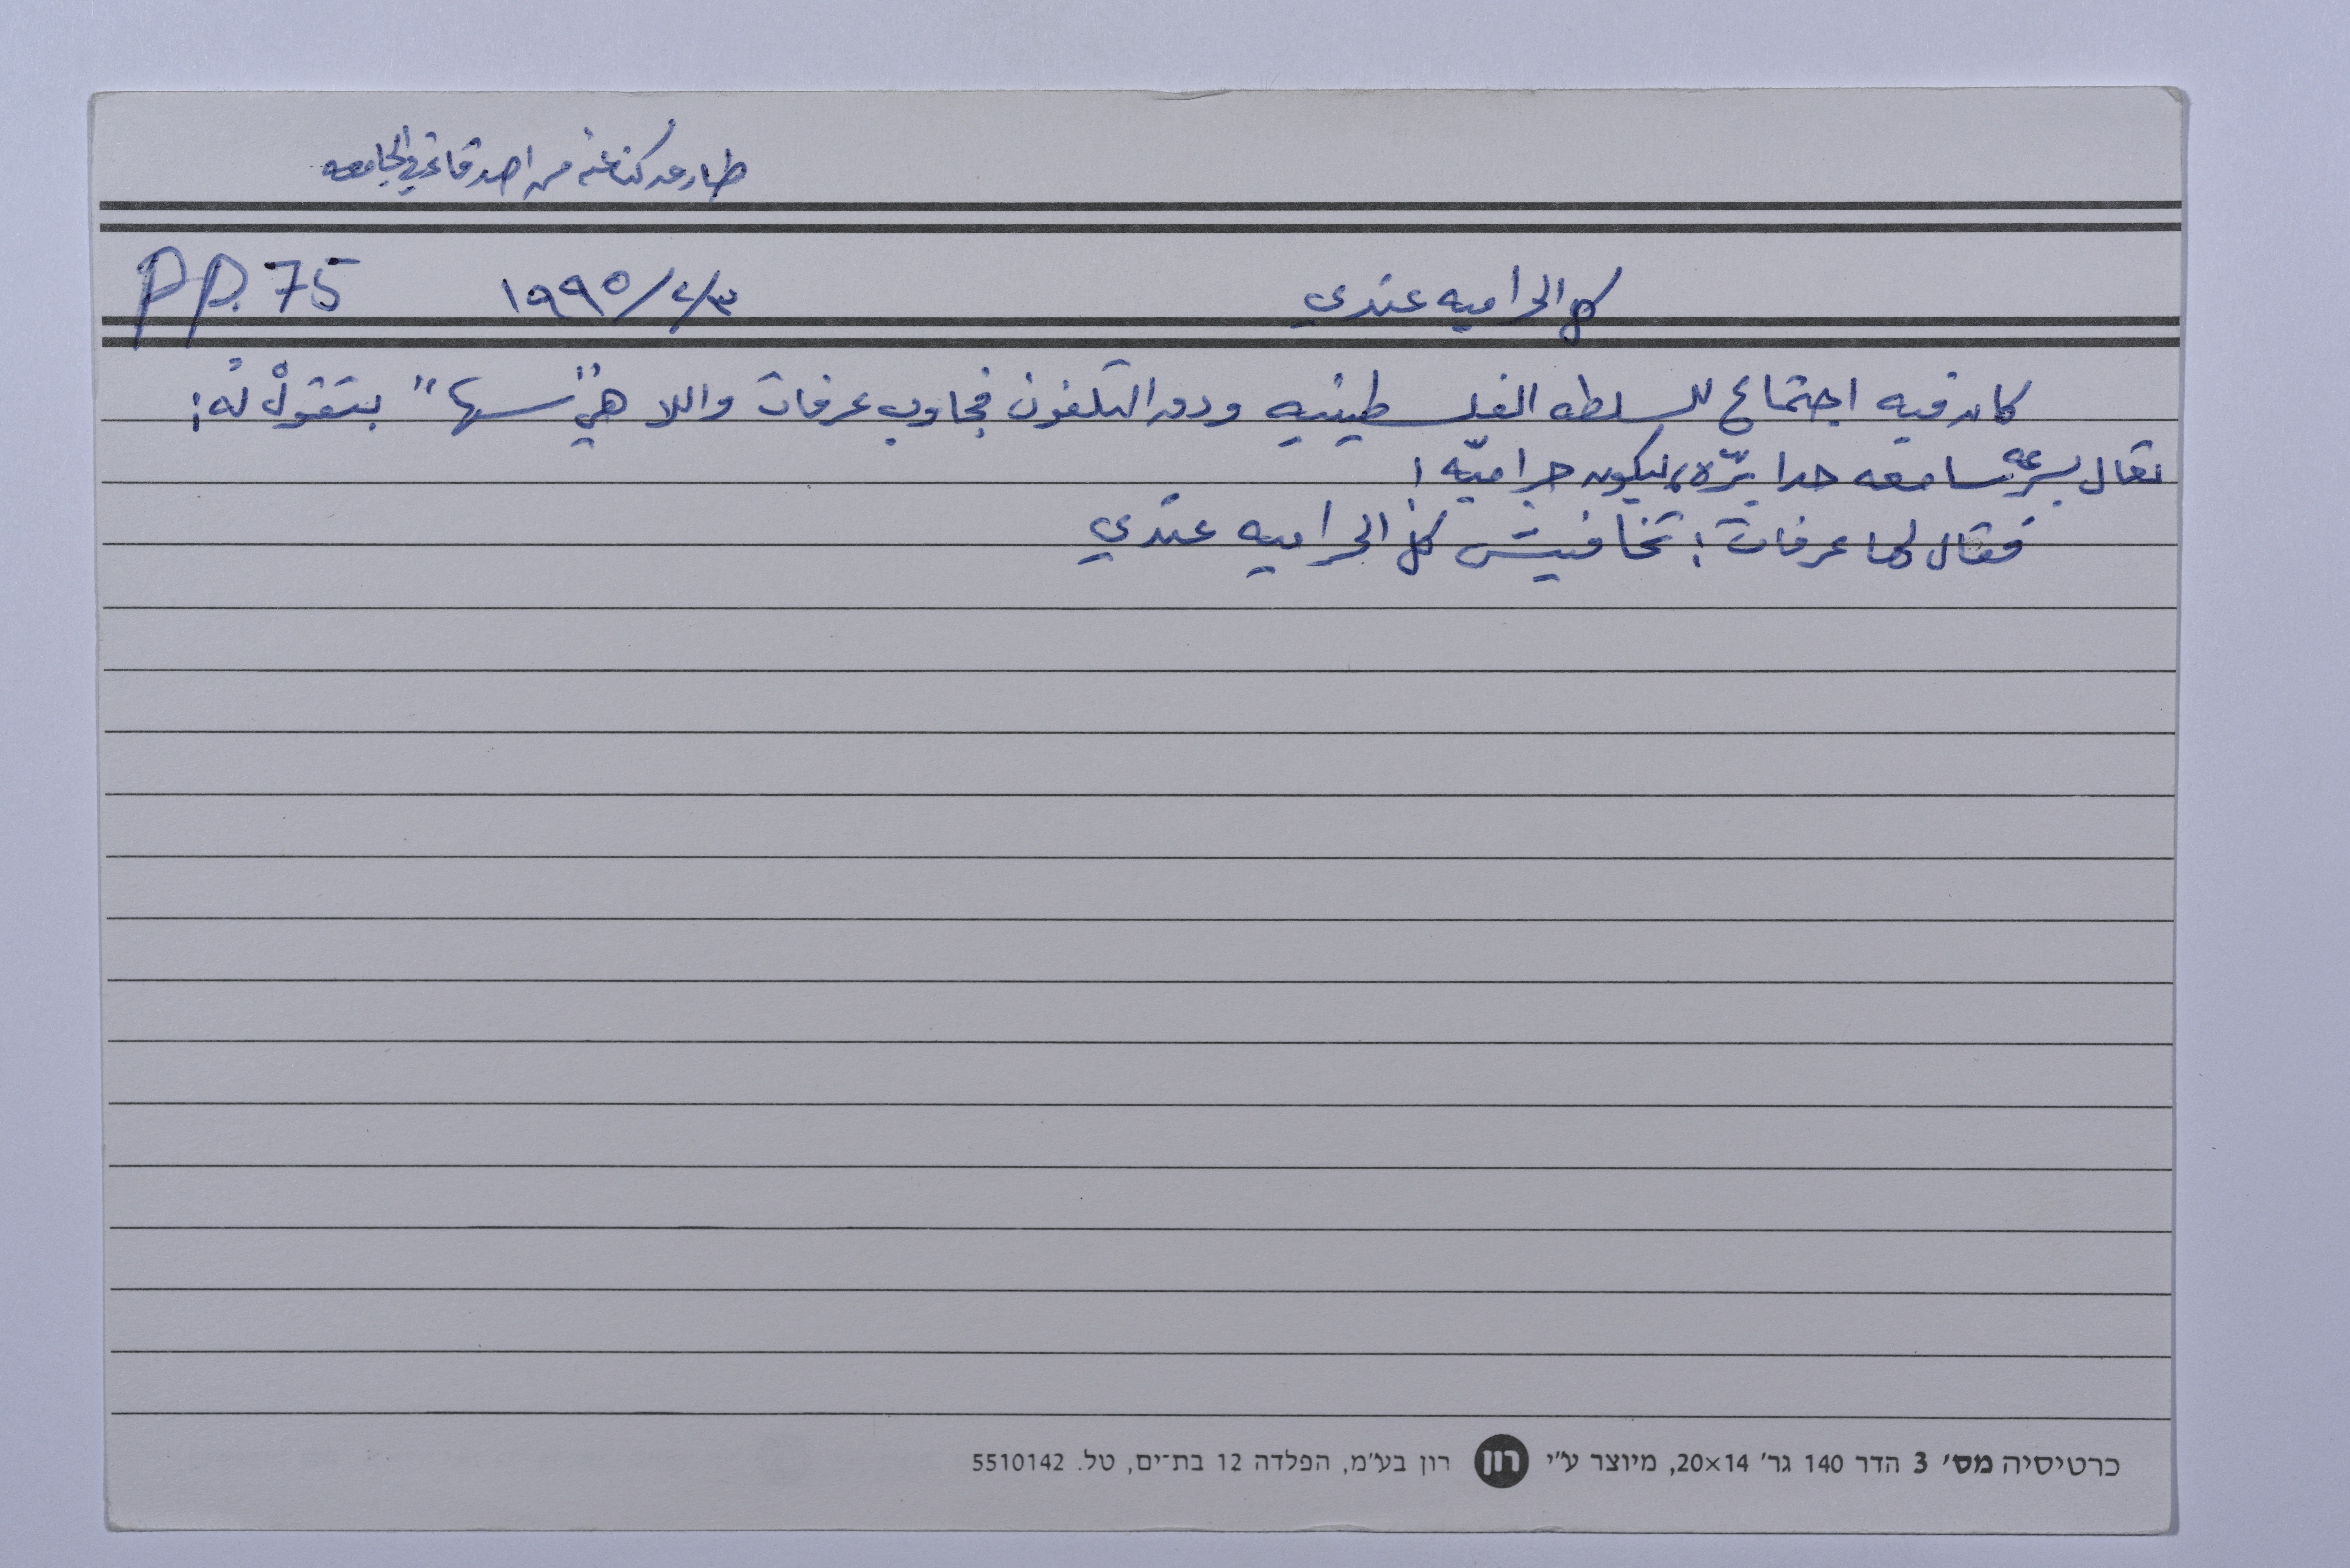 طارق كناعنه من اصدقائه في الجامعه
كل الحراميه عندي ١٩٩٥/٢/٣ PP.75
كان فيه اجتماع للسلطه الفلسطينيه ودق التلفون فجاوب عرفات واللا هيّ "سها" بتقولْ لُه:
تعال بسرعه سامعه حدا برّه، ليكون حراميّه!
فقال لها عرفات: تخافيش كل الحراميه عندي
כרטיסיה מס׳ 3 הדר 140 גר׳ 20×14, מיוצר ע״י רון רון בע״מ, הפלדה 12 בת־ים, טל. 5510142